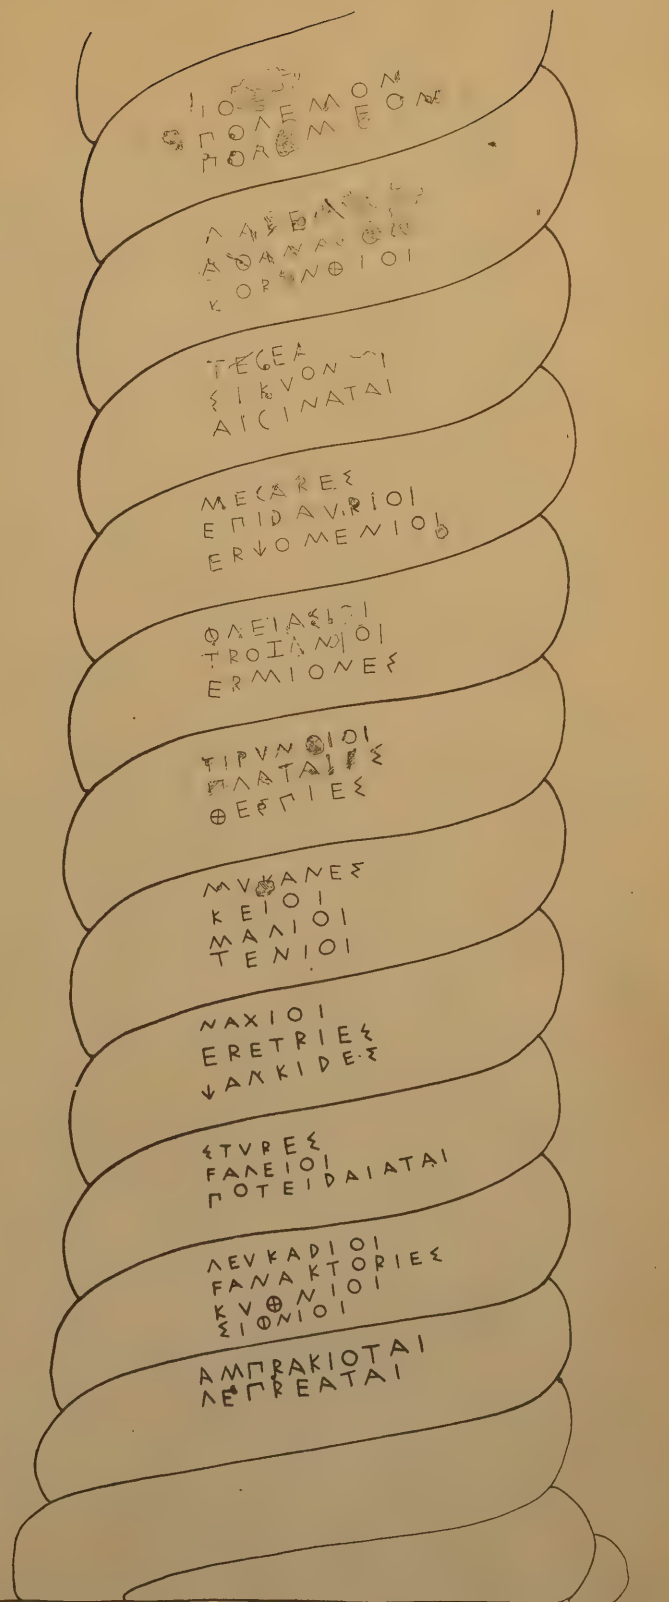 ΠΟΛΕΜΟΝ
ΑΘΑΝΑΙΟΙ
ΚΟΡΙΝΘΙΟΙ
ΤΕΓΕΑ
ΣΙΚΥΟΝΙΟΙ
ΑΙΓΙΝΑΤΑΙ
ΜΕΓΑΡΕΣ
ΕΠΙΔΑΥΡΙΟΙ
ΕΡΧΟΜΕΝΙΟΙ
ΦΛΕΙΑΣΙΟΙ
ΤΡΟΖΑΝΙΟΙ
ΕΡΜΙΟΝΕΣ
ΤΙΡΥΝΘΙΟΙ
ΠΛΑΤΑΙΕΣ
ΘΕΣΠΙΕΣ
ΜΥΚΑΝΕΣ
ΚΕΙΟΙ
ΜΑΛΙΟΙ
ΤΕΝΙΟΙ
ΝΑΧΙΟΙ
ΕΡΕΤΡΙΕΣ
ΧΑΛΚΙΔΕΣ
ΣΤΥΡΕΣ
ϜΑΛΕΙΟΙ
ΠΟΤΕΙΔΑΙΑΤΑΙ
ΛΕΥΚΑΔΙΟΙ
ϜΑΝΑΚΤΟΡΙΕΣ
ΚΥΘΝΙΟΙ
ΣΙΦΝΙΟΙ
ΑΜΠΡΑΚΙΟΤΑΙ
ΛΕΠΡΕΑΤΑΙ